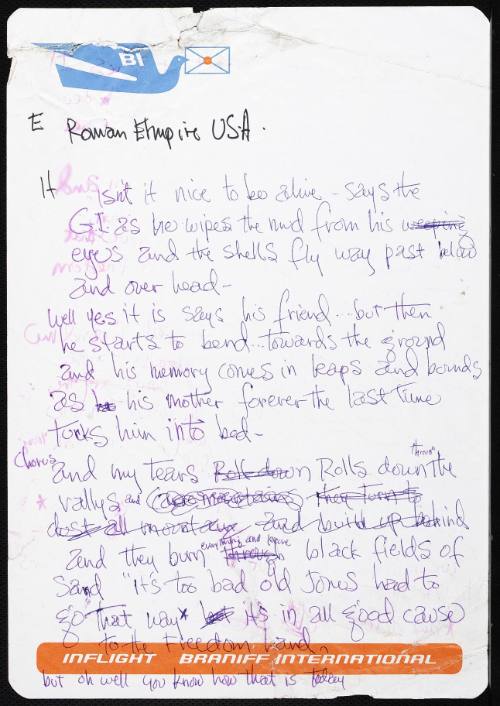 BI
E Roman Empire USA.
It Isn't it nice to be alive - says the
GI. as he wipes the mud from his weeping
eyes and the shells fly way past below
and over head-
well yes it is says his friend...but then
he starts to bend..towards the ground
and his memory comes in leaps and bounds
as his mother forever the last time
tucks him into bed-
Chorus and my tears Roll down Rolls down the
vallys, and they turn to
dost all mountains and build up behind
and they burn everything and leave black fields of
Sand "it's too bad old Jones had to
go that way* its in all good cause
to the Freedom land,
INFLIGHT BRANIFF INTERNATIONAL
but oh well you know how that is today